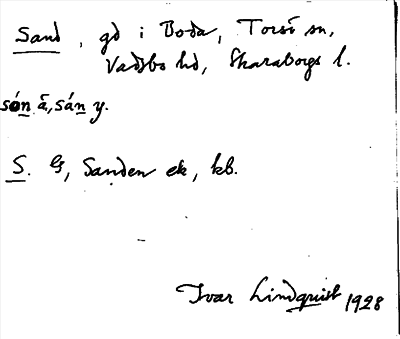 Sand, gd i Boda, Torsö sn,
Vadsbo hd, Skaraborgs l.
són ä., sán y.
S. G, Sanden ek, kb.
Ivar Lindquist 1928